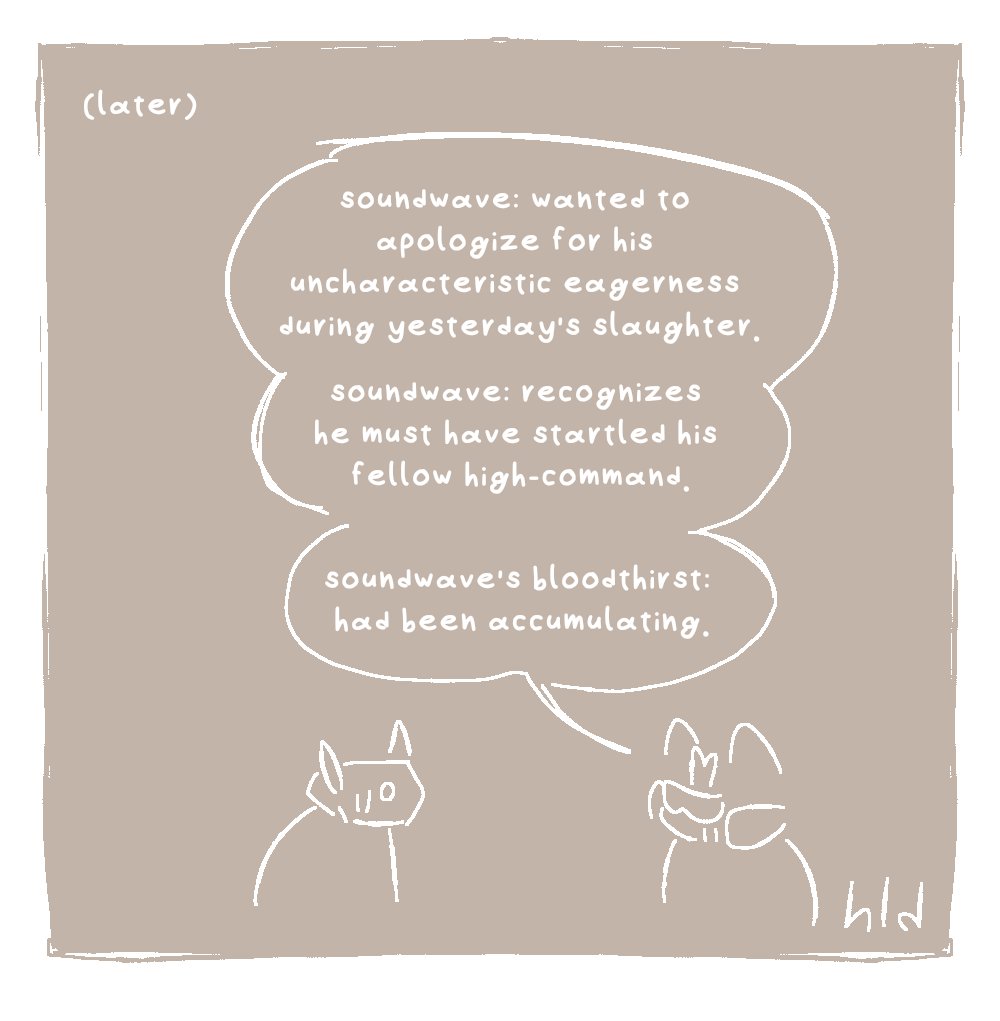 (later)
soundwave: wanted to
apologize for his
uncharacteristic eagerness
during yesterday's slaughter.
soundwave: recognizes
he must have startled his
fellow high-command.
soundwave's bloodthirst:
had been accumulating.
hld